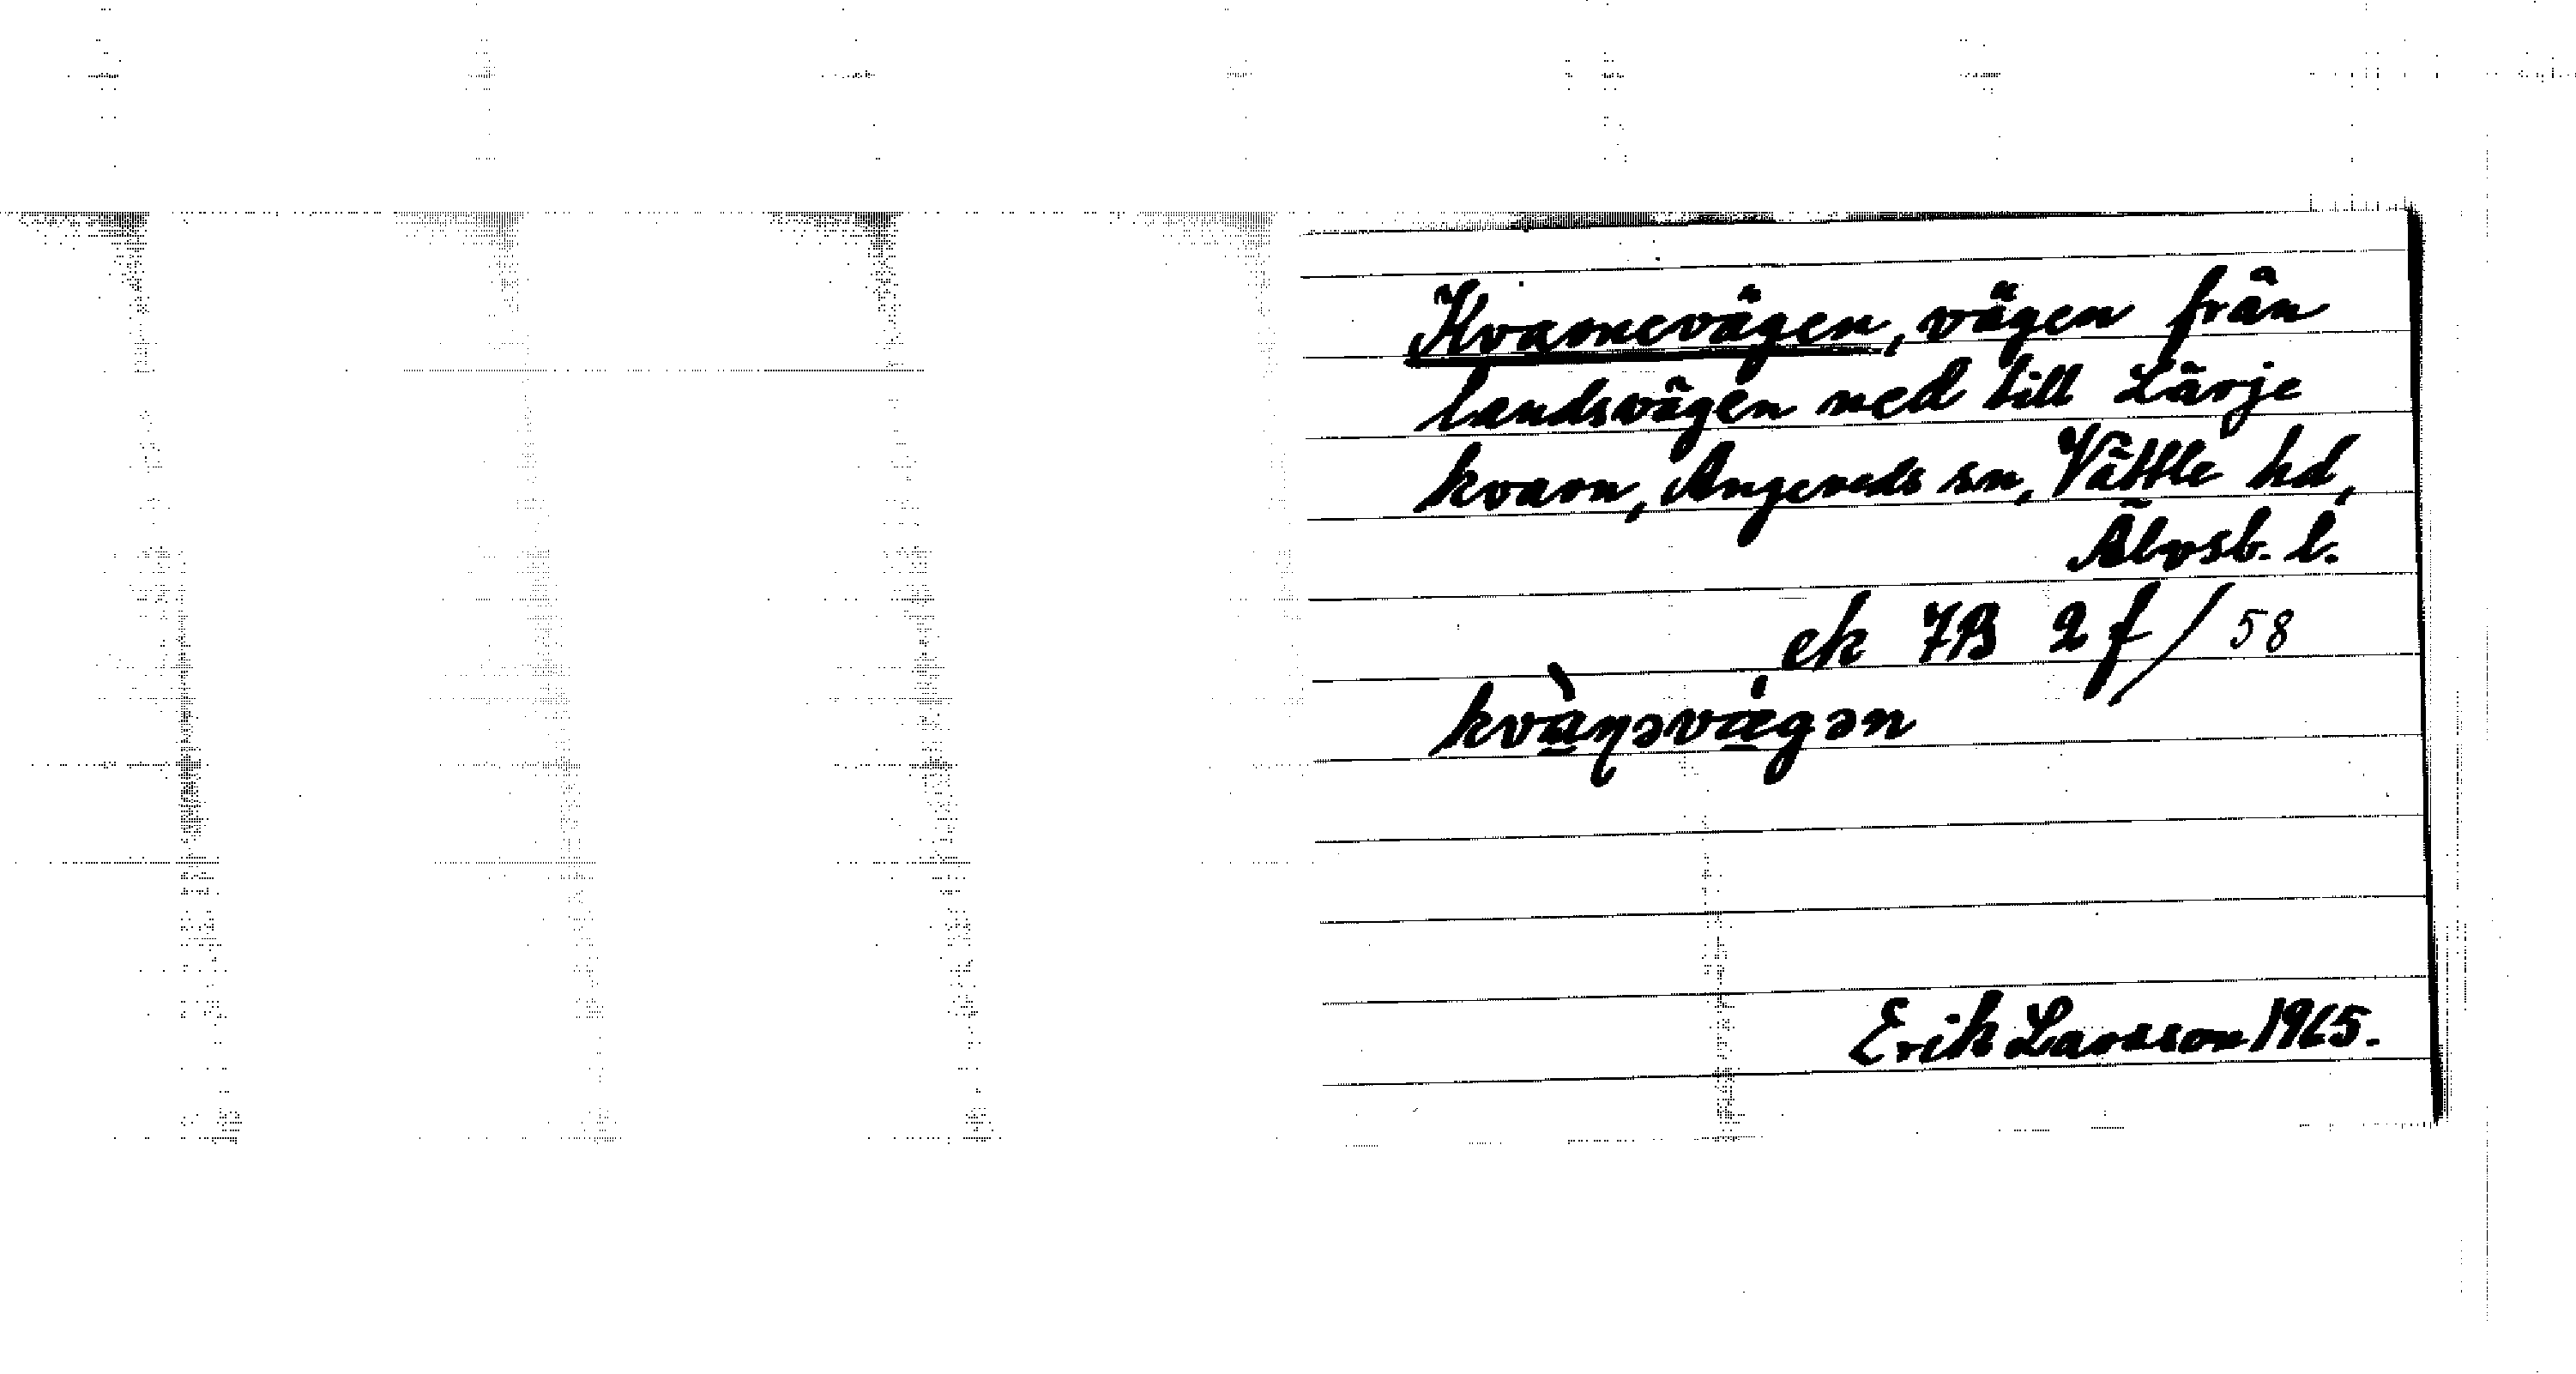 Kvarnevägen, vägen från
landsvägen ned till Lärje
kvarn, Angereds sn, Vättle hd,
Älvsb. l.
ek 7B 2 f / 58
kvàɳəvægən
Erik Larsson 1965.